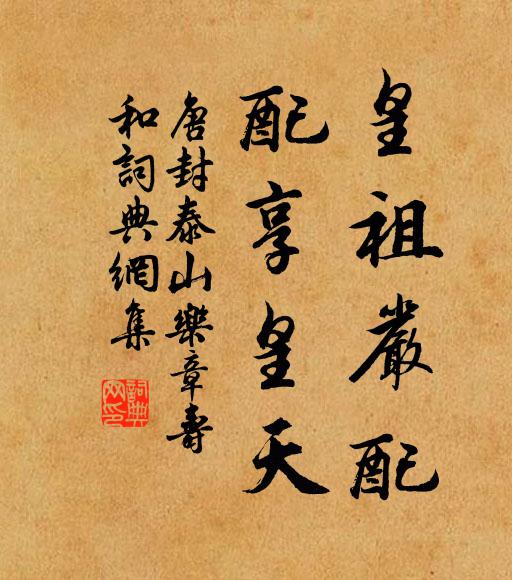 皇祖嚴配
配享皇天
唐封泰山樂章壽
和詞典網集
詞典
网印